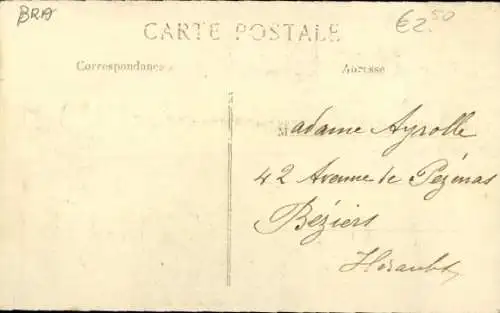 BRA
€2.50
CARTE POSTALE
Correspondance
Adresse
Madame Ayrolle
42 Avenue de Pézenas
Béziers
Hérault